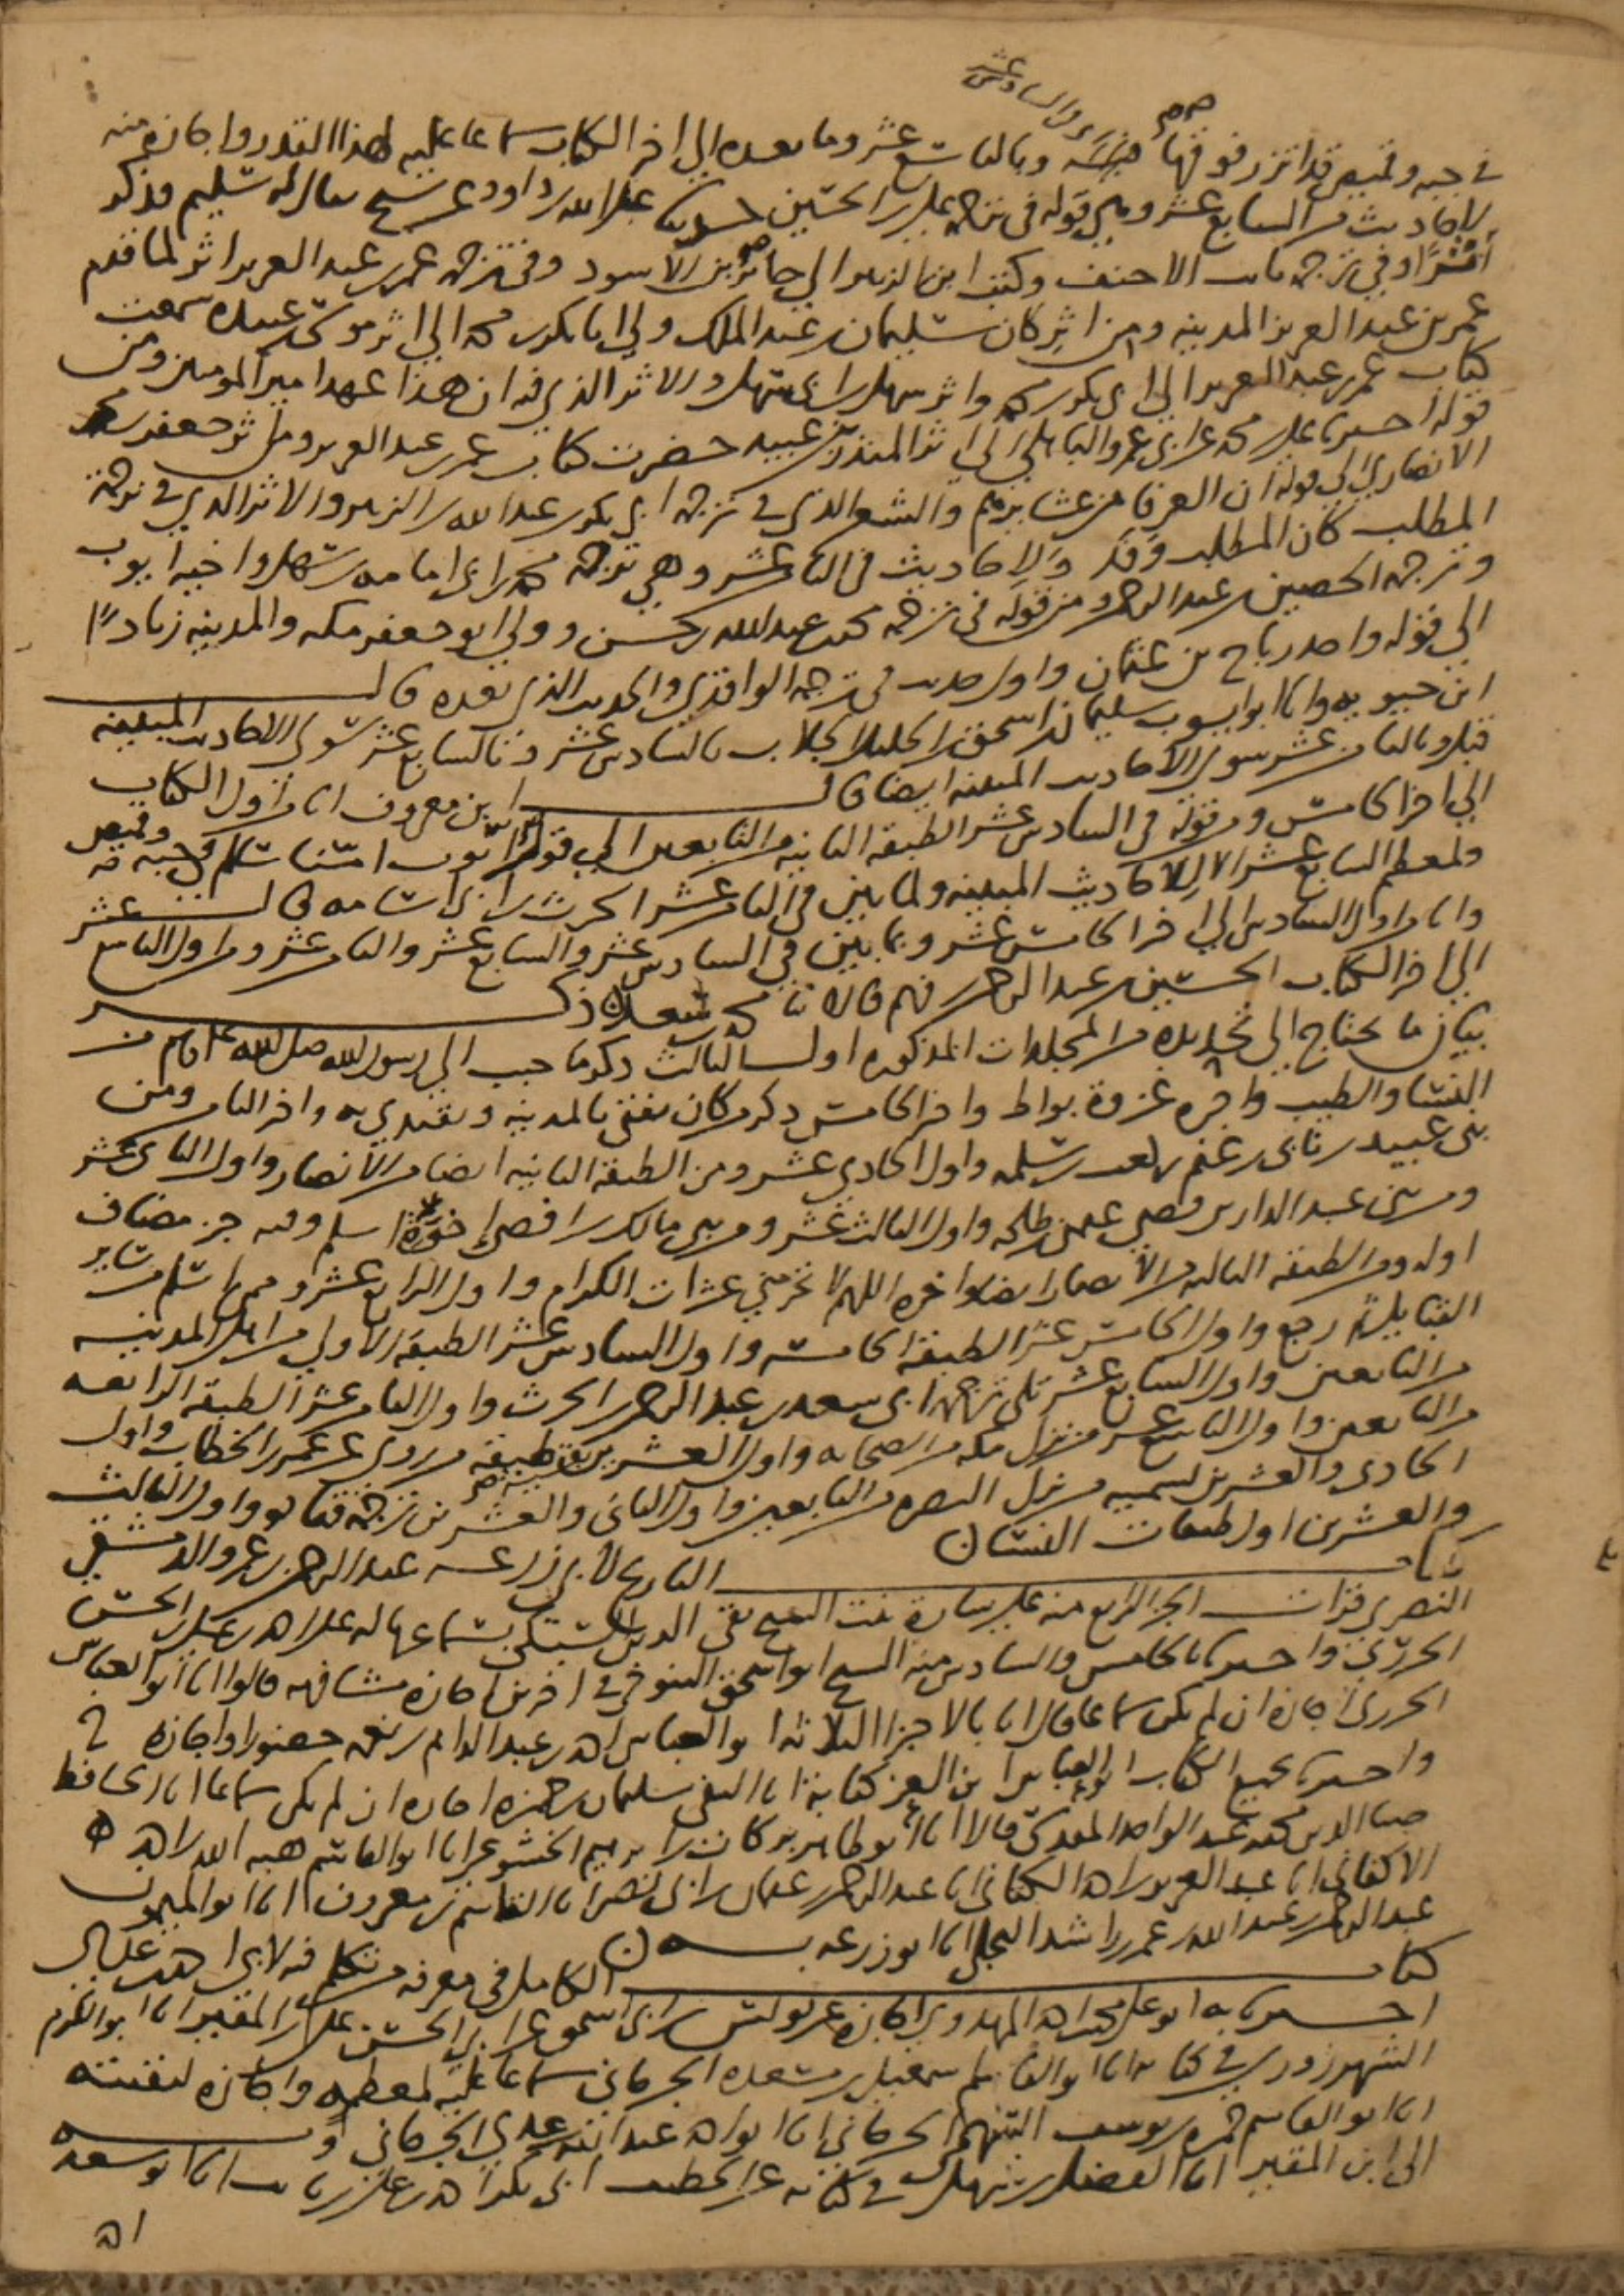 والسادس عشر
في جبه وقميص قد اتزر فوقها وبالتاسع عشر وما بعده الي اخر الكتاب سماعا عليه لهذا القدر واجازة منه
لاحاديث من السابع عشر وهي قوله في ترجمة علي بن الحسين عبد الله بن داود عن شيخ يقال له سليم فذكر
اثرا وفي ترجمة الاحنف وكتب ابن الزبير الي جابر بن الاسود وفي ترجمة عمر بن عبد العزيز اثر لما قدم
عمر بن عبد العزيز المدينه ومن اثر كان سليمان بن عبد الملك ولي ابا بكر بن محمد الي اثر موسى بن عبيده سمعت
كتاب عمر بن عبد العزيز الي ابي بكر بن محمد واثر سهل بن ابي سهل والاثر الذي فيه ان هذا عهد امير المومنين ومن
قوله علي بن محمد عن ابي عمرو الباهلي الي اثر المنذر بن عبيد حضرت كتاب عمر بن عبد العزيز جعفر بن محمد
الانصاري الي قوله ان العرق من عشا برهم والشعر الذي في ترجمة ابي بكر بن عبد الله بن الزبير والاثر الذي في ترجمة
المطلب كان المطلب وفد والاحاديث في الثامن عشر وهي ترجمة محمد بن ابي امامه بن سهل واخيه ايوب
وترجمة الحصين بن عبد الرحمن ومن قوله في ترجمة محمد بن عبد الله بن حسن وولي ابو جعفر مكه والمدينه زيادا
الي قوله واحد رباح بن عثمان واول حديث في ترجمة الواقدي والحديث الذي بعده قال
ابن حيويه وانا ابو ايوب سليمان بن اسحق بن الخليل الجلاب بالسادس عشر وبالسابع عشر سوى الاحاديث المبينه
قبل وبالثامن عشر سوى الاحاديث المبينه ايضا قال ابن معروف انا من اول الكتاب
الي اخر الخامس ومن قوله في السادس عشر الطبقه الثانيه من التابعين الي قوله ايوب امسنا سالم في جبه وقميص
ولمعظم السابع عشر الا الاحاديث المبينه ولما بين في الثامن عشر الحرث بن ابي اسامه قال
وانا من اول السادس الي اخر الخامس عشر وبما بين في السادس عشر والسابع عشر والثامن عشر ومن اول التاسع عشر
الي اخر الكتاب الحسين بن عبد الرحمن بن فهم قالا ثنا محمد بن سعد ذكر
بيان ما يحتاج الي تحديده من المجلدات المذكوره اول الثالث ذكر ما حبب الي رسول الله صلى الله عليه وسلم من
النساء والطيب واخره غزوة بواط واخر الخامس ذكر من كان يفتي بالمدينه ويقتدي به واخر الثامن ومن
بني عبيد بن ثاني بن غنم بن كعب بن سلمه واول الحادي عشر ومن الطبقه الثانيه ايضا من الانصار واول الثاني عشر
ومن بني عبد الدار بن قصي عثمن بن طلحه واول الثالث عشر ومن بني مالك بن افصى اخوة اسلم وفيه جز مضاف
اوله ومن الطبقه الثالثه من الانصار ايضا واخره اللهم لا تحرمني عشرات الكرام واول الرابع عشر وممن اسلم من ساير
القبايل ثم رجع واول الخامس عشر الطبقه الخامسه واول السادس عشر الطبقه الاولي من اهل المدينه
من التابعين واول السابع عشر تلي ترجمة ابي سعد بن عبد الرحمن بن الحرث واول الثامن عشر الطبقه الرابعه
من التابعين واول التاسع عشر من نزل مكه من الصحابه واول العشرين بقية طبقه من روى عن عمر بن الخطاب واول
الحادي والعشرين تسميه من نزل البصره من التابعين واول الثاني والعشرين ترجمة قتاده واول الثالث
والعشرين اول طبقات النسا
كتاب التاريخ لابي زرعه عبد الرحمن بن عمرو الدمشقي
النصري قرات الجز الرابع منه علي سارة بنت الشيخ تقي الدين السبكي بسماعها له على احمد بن علي بن الحسن
الجزري بالخامس والسادس منه الشيخ ابو اسحق التنوخي في اخرين اجازة مشافهه قالوا انا ابو العباس
الجزري اجازة ان لم يكن سماعا قال انا بالاجزا الثلاثه ابو العباس احمد بن عبد الدايم بن نعمه حضورا واجازه ح
بجميع الكتاب ابو العباس ابن العز كتابة انا التقي سليمان بن حمزه اجازه ان لم يكن سماعا انا الحافظ
ضيا الدين محمد بن عبد الواحد المقدسي قالا انا ابو طاهر بركات بن ابرهيم الخشوعي انا ابو القاسم هبه الله بن احمد
الاكفاني انا عبد العزيز بن احمد الكتاني انا عبد الرحمن بن عثمان بن ابي نصر انا القاسم بن معروف انا ابو الميمون
عبد الرحمن بن عبد الله بن عمر بن راشد البجلي انا ابو زرعه به
كتاب الكامل في معرفه من تكلم فيه لابي احمد بن عدي
به ابو علي محمد بن احمد المهدوي اجازة عن يونس بن ابي اسحق عن ابي الحسن علي بن المقير انا ابو الكرم
الشهرزوري في كتابه انا ابو القاسم اسمعيل بن مسعده الجرجاني سماعا عليه لمعظمه واجازه لبقيته
انا ابو القاسم حمزه بن يوسف السهمي الجرجاني انا ابو احمد عبد الله بن عدي الجرجاني وبه
الي ابن المقير انا الفضل بن سهل في كتابه عن الخطيب ابي بكر احمد بن علي بن ثابت انا ابو سعد